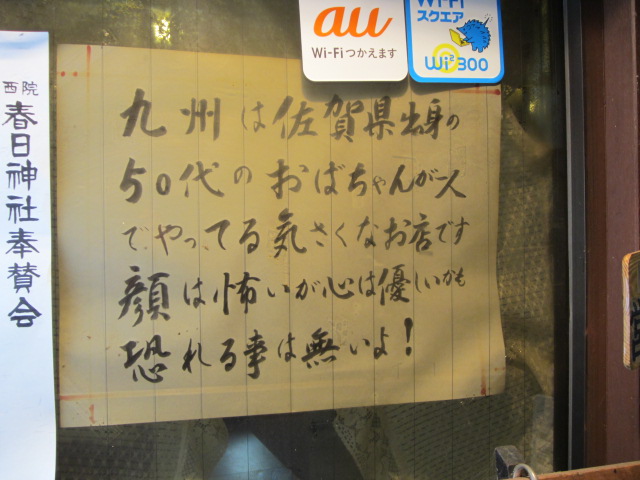 西院
春日神社奉賛会
au
Wi-Fiつかえます
Wi-Fi
スクエア
Wi2 300
九州は佐賀県出身の
50代のおばちゃんが一人
でやってる気さくなお店です
顔は怖いが心は優しいかも
恐れる事は無いよ!